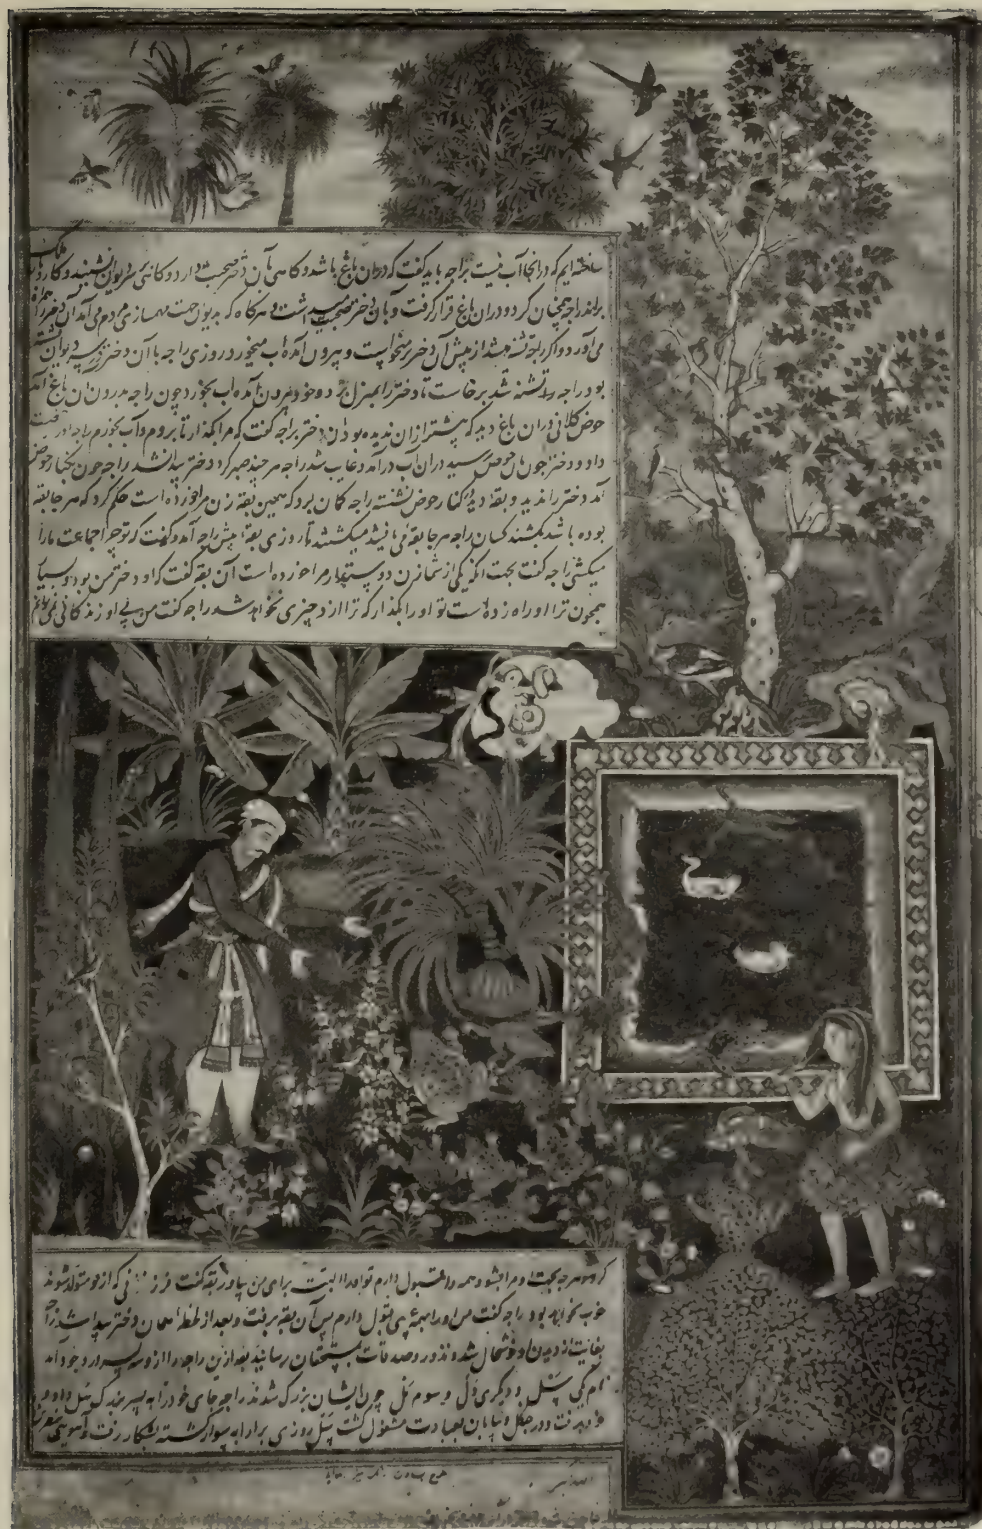 ساخته‌ایم که در انجا آب نیست براجه باید گفت که در ان باغ باشد و گاهی بآن دختر صحبت دارد و گاهی بر سر دیوان نشیند و کار
براند راجه همچنان کرد و در ان باغ قرار گرفت و بان دختر صحبت میداشت و هرگاه که بدیوان جهت مهمسازی مردم می آمد آن دختر را همراه
می آورد و اگر راجه تشنه میشد از پیش آن دختر بر میخاست و بیرون آمده آب میخورد روزی راجه با آن دختر بر سر دیوان
بود راجه تشنه شد برخاست تا دختر را بمنزل برد و خود بیرون آمده آب بخورد چون راجه بدرون ان باغ آمد
حوض کلانی در ان باغ دید که پیشتر ازان ندیده بود ان دختر براجه گفت که مرا بگذار تا بروم و آب بخورم راجه اورا رخصت
داد و دختر چون بان حوض رسید در ان آب درآمد و غایب شد راجه هر چند صبر کرد دختر پیدا نشد راجه چون بکنار حوض
آمد دختر را ندید و بقه دید بر کنار حوض نشسته راجه گمان برد که همین بقه زن مرا خورده است حکم کرد که هر جا بقه
بوده باشد بکشند کسان راجه هر جا بقه می یافتند میکشتند تا روزی بقه پیش راجه آمد و گفت که تو چرا جماعت مارا
میکشی راجه گفت بجهت انکه یکی از شما زن دوستدار مرا خورده است آن بقه گفت که او دختر من بود و بسیار
همچون ترا او راه زده است تو اورا بگذار که ترا ازو چیزی نخواهد شد راجه گفت من بی او زندگانی
هرچه بجهت او مرا بشود همه را قبول دارم تو اورا البته برای من بیاور بقه گفت فرزندانی که ازو متولد شوند
خوب نخواهد بود راجه گفت من اورا همه قبول دارم پس آن بقه برفت و بعد از لحظه همان دختر پیدا شد راجه
بغایت از دیدن او خوشحال شد و نذور و صدقات بمستحقان رسانید بعد ازین راجه را ازو سه پسر در وجود آمد
نام یکی سل و دیگری دل و سوم بل چون ایشان بزرگ شدند راجه جای خود را به پسر خود که سل داد و
خود برفت و در جنگل و بیابان بعبادت مشغول گشت سل روزی برارابه سوار گشته بشکار رفت و آهویی